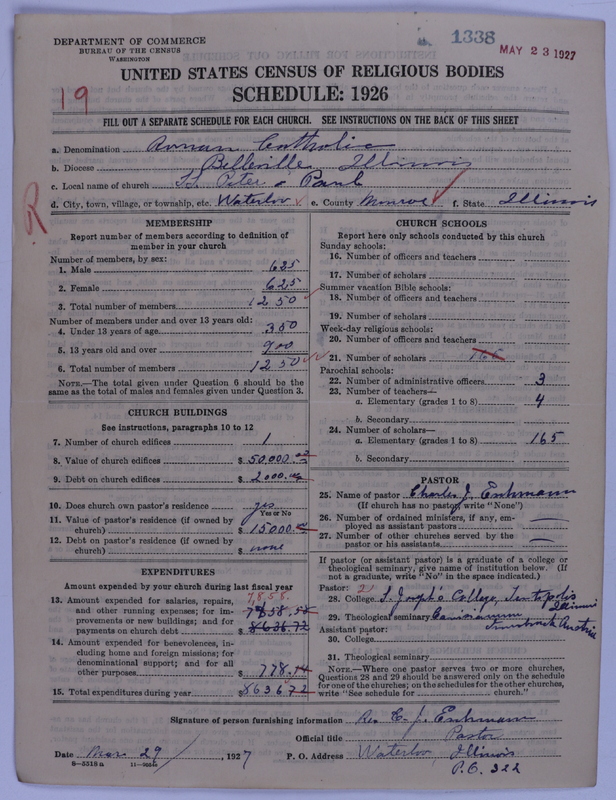 1338
MAY 23 1927
DEPARTMENT OF COMMERCE
BUREAU OF THE CENSUS
WASHINGTON
UNITED STATES CENSUS OF RELIGIOUS BODIES
SCHEDULE: 1926
19
FILL OUT A SEPARATE SCHEDULE FOR EACH CHURCH. SEE INSTRUCTIONS ON THE BACK OF THIS SHEET
a. Denomination Roman Catholic
b. Diocese Belleville, Illinois
c. Local name of church SS Peter & Paul
d. City, town, village, or township, etc. Waterloo e. County Monroe f. State Illinois
R
MEMBERSHIP
Report number of members according to definition of
member in your church
Number of members, by sex:
1. Male 625
2. Female 625
3. Total number of members 1250
Number of members under and over 13 years old:
4. Under 13 years of age 350
5. 13 years old and over 900
6. Total number of members 1250
NOTE.—The total given under Question 6 should be the
same as the total of males and females given under Question 3.
CHURCH BUILDINGS
See instructions, paragraphs 10 to 12
7. Number of church edifices 1
8. Value of church edifices $50,000.00
9. Debt on church edifices $2000.00
10. Does church own pastor's residence yes
Yes or No
11. Value of pastor's residence (if owned by
church) $15000.00
12. Debt on pastor's residence (if owned by
church) $none
EXPENDITURES
Amount expended by your church during last fiscal year
7,858.
13. Amount expended for salaries, repairs,
and other running expenses; for im- 7858.58
provements or new buildings; and for
payments on church debt $8636.72
14. Amount expended for benevolences, in-
cluding home and foreign missions; for
denominational support; and for all
other purposes $778.14
15. Total expenditures during year $8636.72
CHURCH SCHOOLS
Report here only schools conducted by this church
Sunday schools:
16. Number of officers and teachers
17. Number of scholars
Summer vacation Bible schools:
18. Number of officers and teachers
19. Number of scholars
Week-day religious schools:
20. Number of officers and teachers
21. Number of scholars 165
Parochial schools:
22. Number of administrative officers 3
23. Number of teachers—
a. Elementary (grades 1 to 8) 4
b. Secondary
24. Number of scholars—
a. Elementary (grades 1 to 8) 165
b. Secondary
PASTOR
25. Name of pastor Charles J. Eschmann
(If church has no pastor, write "None")
26. Number of ordained ministers, if any, em-
ployed as assistant pastors —
27. Number of other churches served by the
pastor or his assistants —
If pastor (or assistant pastor) is a graduate of a college or
theological seminary, give name of institution below. (If
not a graduate, write "No" in the space indicated.)
Pastor: 2
28. College St Joseph's College, Teutopolis
Illinois
29. Theological seminary Canisianum
Innsbruck Austria
Assistant pastor:
30. College
31. Theological seminary
NOTE.—Where one pastor serves two or more churches,
Questions 28 and 29 should be answered only on the schedule
for one of the churches; on the schedules for the other churches,
write "See schedule for church."
Signature of person furnishing information Rev C. J. Eschmann
Official title Pastor
Date Mar 29, 1927 P. O. Address Waterloo, Illinois
8—5518 a P.O. 322